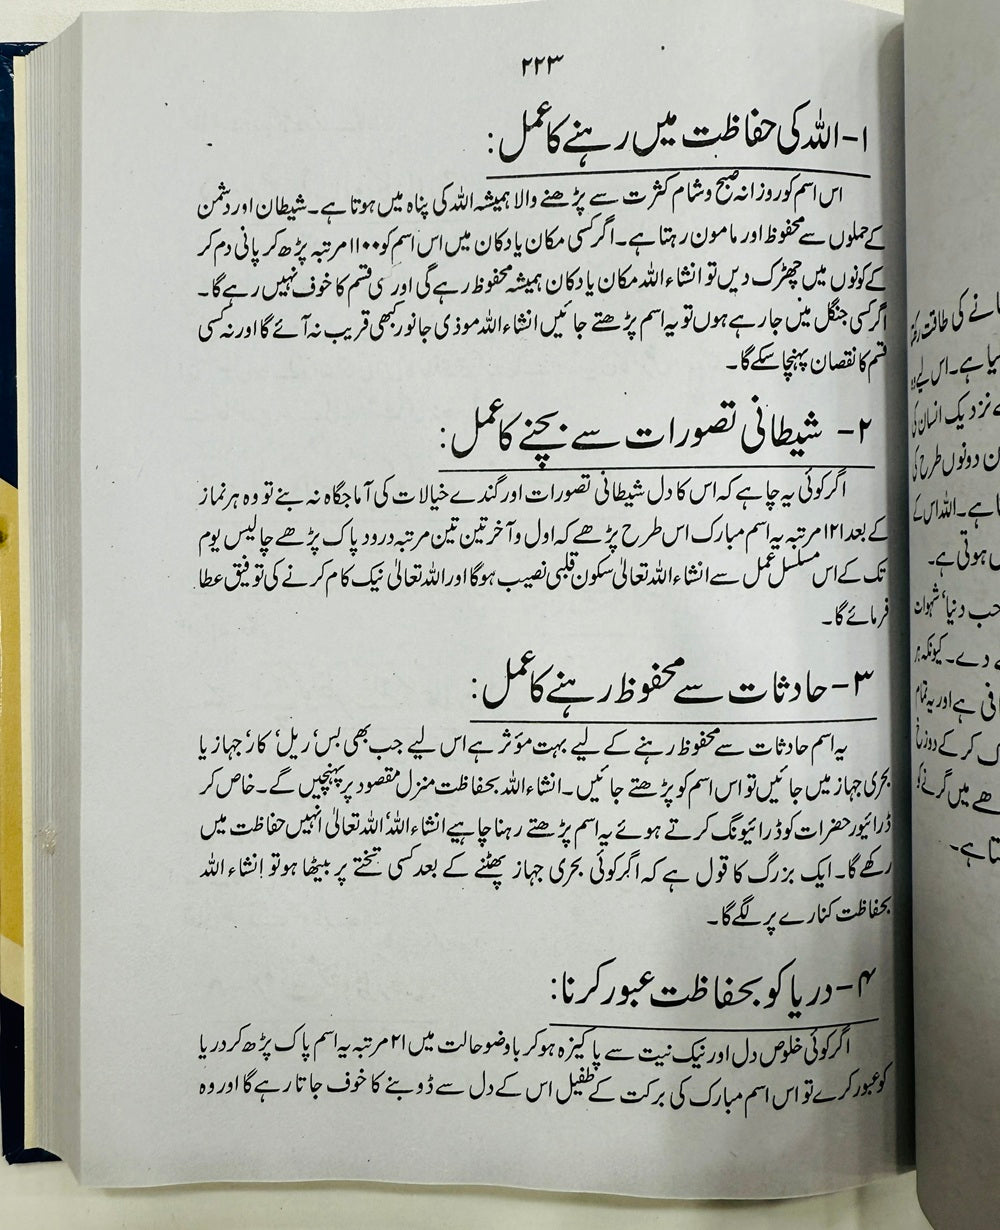 ۲۲۳
۱- اللہ کی حفاظت میں رہنے کا عمل:
اس اسم کو روزانہ صبح و شام کثرت سے پڑھنے والا ہمیشہ اللہ کی پناہ میں ہوتا ہے۔ شیطان اور دشمن
کے حملوں سے محفوظ اور مامون رہتا ہے۔ اگر کسی مکان یا دکان میں اس اسم کو ۱۱۰۰ مرتبہ پڑھ کر پانی دم کر
کے کونوں میں چھڑک دیں تو انشاء اللہ مکان یا دکان ہمیشہ محفوظ رہے گی اور کسی قسم کا خوف نہیں رہے گا۔
اگر کسی جنگل میں جا رہے ہوں تو یہ اسم پڑھتے جائیں انشاء اللہ موذی جانور کبھی قریب نہ آئے گا اور نہ کسی
قسم کا نقصان پہنچا سکے گا۔
۲- شیطانی تصورات سے بچنے کا عمل:
اگر کوئی یہ چاہے کہ اس کا دل شیطانی تصورات اور گندے خیالات کی آماجگاہ نہ بنے تو وہ ہر نماز
کے بعد ۱۲۱ مرتبہ یہ اسم مبارک اس طرح پڑھے کہ اول و آخر تین تین مرتبہ درود پاک پڑھے چالیس یوم
تک کے اس مسلسل عمل سے انشاء اللہ تعالیٰ سکون قلبی نصیب ہوگا اور اللہ تعالیٰ نیک کام کرنے کی توفیق عطا
فرمائے گا۔
۳- حادثات سے محفوظ رہنے کا عمل:
یہ اسم حادثات سے محفوظ رہنے کے لیے بہت مؤثر ہے اس لیے جب بھی بس‘ ریل‘ کار‘ جہاز یا
بحری جہاز میں جائیں تو اس اسم کو پڑھتے جائیں۔ انشاء اللہ بحفاظت منزل مقصود پر پہنچیں گے۔ خاص کر
ڈرائیور حضرات کو ڈرائیونگ کرتے ہوئے یہ اسم پڑھتے رہنا چاہیے انشاء اللہ‘ اللہ تعالیٰ انہیں حفاظت میں
رکھے گا۔ ایک بزرگ کا قول ہے کہ اگر کوئی بحری جہاز پھٹنے کے بعد کسی تختے پر بیٹھا ہو تو انشاء اللہ
بحفاظت کنارے پر لگے گا۔
۴- دریا کو بحفاظت عبور کرنا:
اگر کوئی خلوص دل اور نیک نیت سے پاکیزہ ہو کر باوضو حالت میں ۲۱ مرتبہ یہ اسم پاک پڑھ کر دریا
کو عبور کرے تو اس اسم مبارک کی برکت کے طفیل اس کے دل سے ڈوبنے کا خوف جاتا رہے گا اور وہ
نے کی طاقت
ہے۔ اس لیے
نزدیک انسان کی
دونوں طرح کی
ہے۔ اللہ اس کے
ہوتی ہے۔
حب دنیا‘ شہوات
دے۔ کیونکہ ہر
ہے اور یہ تمام
کر کے دوزخ
میں گرنے